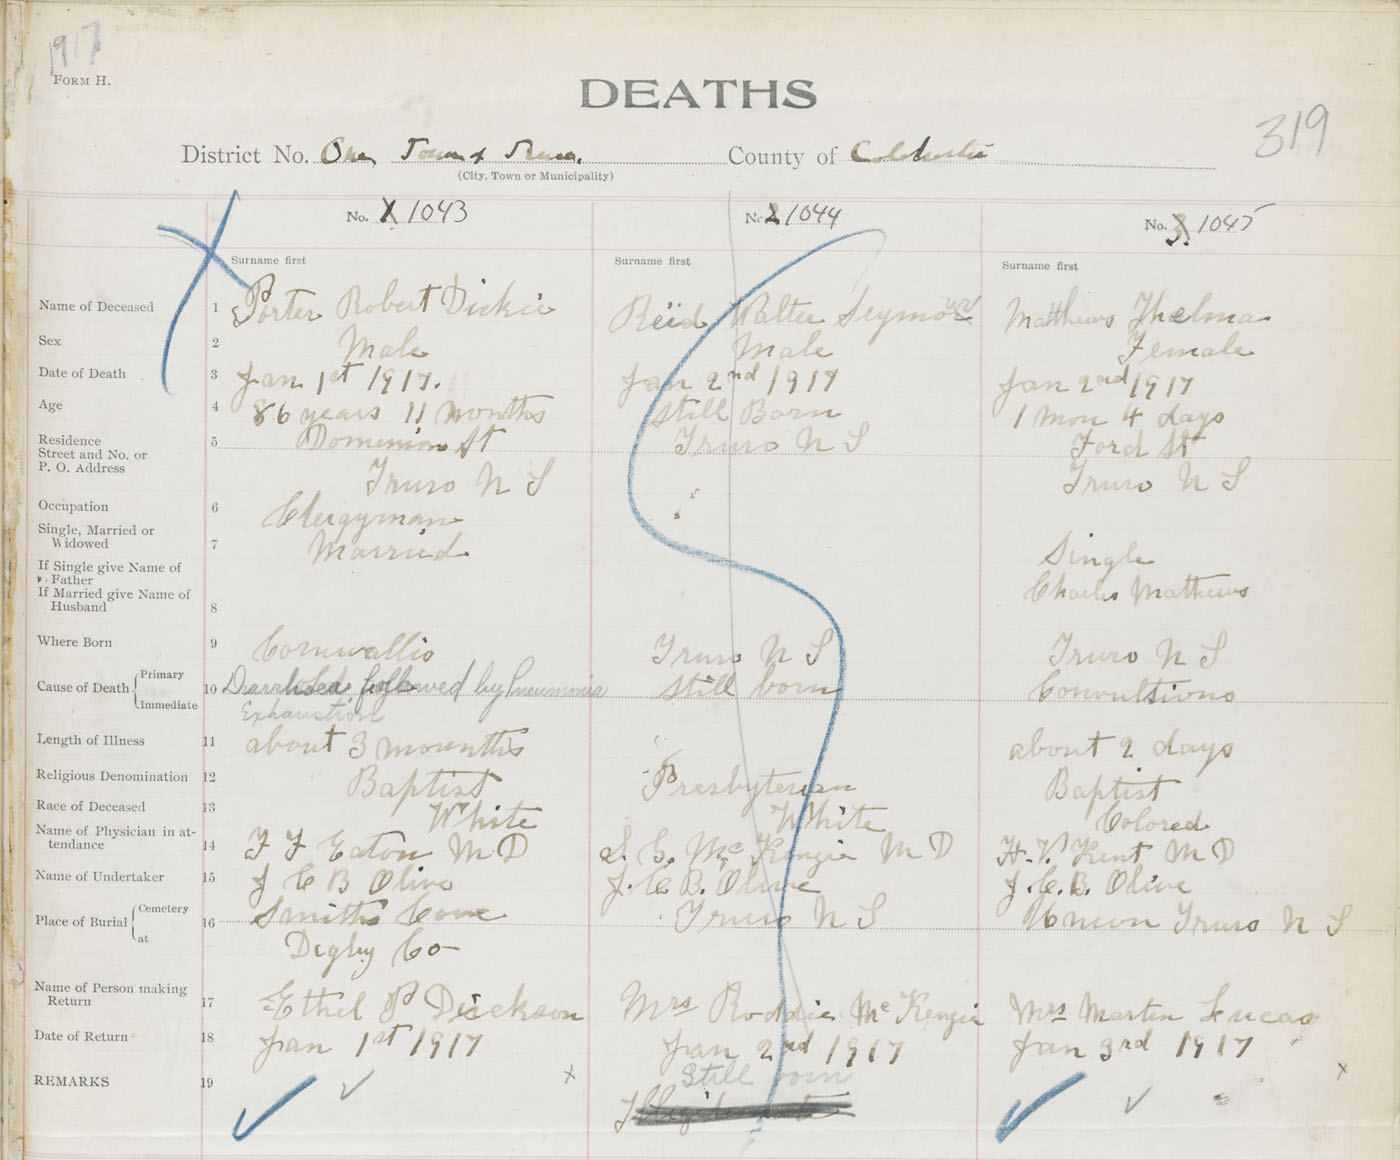 1917
FORM H.
DEATHS
319
District No. One Town of Truro. County of Colchester
(City, Town or Municipality)
No. 1 1043 No. 2 1044 No. 3. 1045
Surname first Surname first Surname first
Name of Deceased 1 Porter Robert Dickie Reid Walter Seymour Matthews Thelma
Sex 2 Male Male Female
Date of Death 3 Jan 1st 1917. Jan 2nd 1917 Jan 2nd 1917
Age 4 86 years 11 months Still Born 1 Mon 4 days
Residence Street and No. or P. O. Address 5 Domenion St Truro N S Ford St
Truro N S Truro N S
Occupation 6 Clergyman
Single, Married or Widowed 7 Married Single
If Single give Name of Father
If Married give Name of Husband 8 Charles Mathews
Where Born 9 Cornwallis Truro N S Truro N S
Cause of Death { Primary Immediate 10 Diarrhoea followed by Pneumonia Still born Convultions
Exhaustion
Length of Illness 11 about 3 mounths about 2 days
Religious Denomination 12 Baptist Presbyterian Baptist
Race of Deceased 13 White White Colored
Name of Physician in attendance 14 F F Eaton M D S. G. McKenzie M D H. V. Kent M D
Name of Undertaker 15 J C B Olive J. C B. Olive J. C. B. Olive
Place of Burial { Cemetery at 16 Smiths Cove Truro N S Union Truro N S
Digby Co
Name of Person making Return 17 Ethel P Dickson Mrs Roddie McKenzie Mrs Martin Lucas
Date of Return 18 Jan 1st 1917 Jan 2nd 1917 Jan 3rd 1917
REMARKS 19 Still born